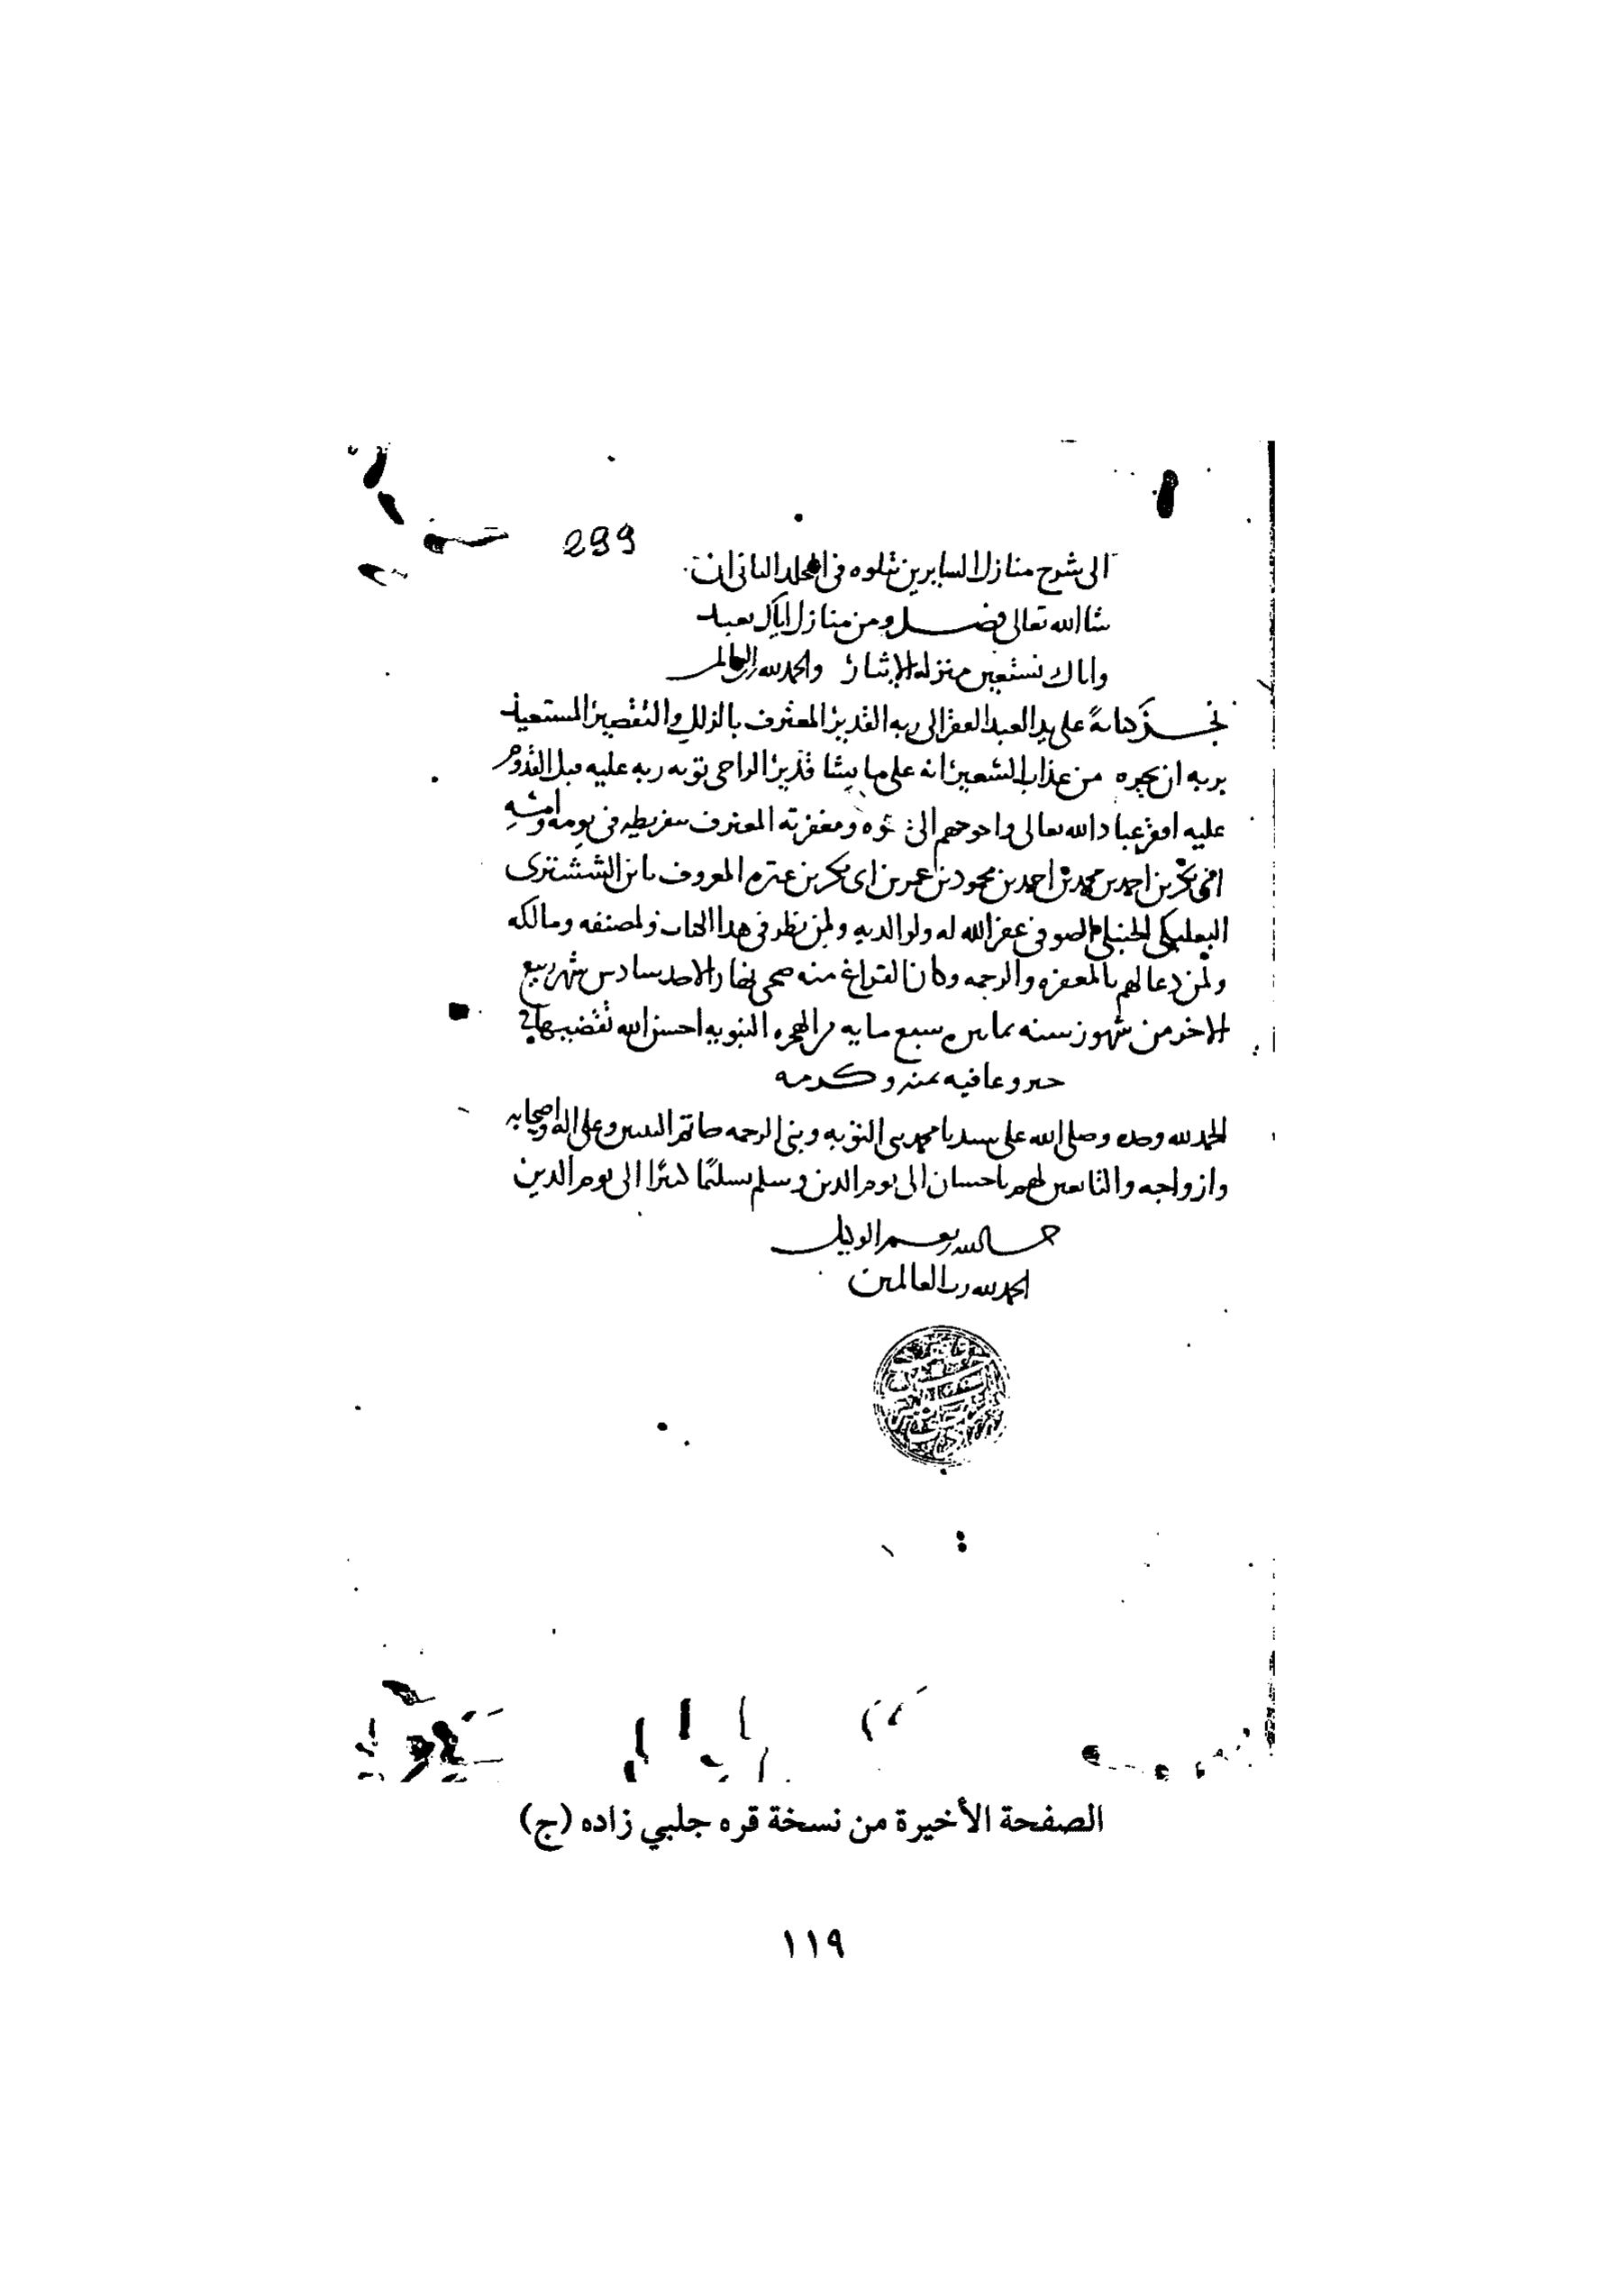 299
الى شرح منازل السايرين نتلوه فى المجلد الثانى ان
شا الله تعالى فصل ومن منازل اياك نعبد
واياك نستعين منزله الايثار والحمد لله رب العالمين
نجز كتابةً على يد العبد الفقير الى ربه القدير المعترف بالزلل والتقصير المستعيذ
بربه ان يجيره من عذاب السعير انه على ما يشا قدير الراجى توبه ربه عليه قبل القدوم
عليه افقر عباد الله تعالى واحوجهم الى عفوه ومغفرته المعترف بتفريطه فى يومه وامسه
ابى بكر بن احمد بن محمد بن احمد بن محمود بن عمر بن ابى بكر بن المعروف بابن الششترى
البعلبكى الحنبلى الصوفى غفر الله له ولوالديه ولمن نظر فى هدا الكتاب ولمصنفه ومالكه
ولمن دعا لهم بالمغفره والرحمه وكان الفراغ منه ضحى نهار الاحد سادس شهر ربيع
الاخر من شهور سنه ثمانين سبع مايه من الهجره النبويه احسن الله تقضيها فى
خير وعافيه بمنه وكرمه
الحمد لله وحده وصلى الله على سيدنا محمد نبى التوبه ونبى الرحمه خاتم النبيين وعلى اله واصحابه
وازواجه والتابعين لهم باحسان الى يوم الدين وسلم تسليمًا كثيرًا الى يوم الدين
حسبنا الله ونعم الوكيل
الحمد لله رب العالمين
الصفحة الأخيرة من نسخة قره جلبي زاده (ج)
١١٩